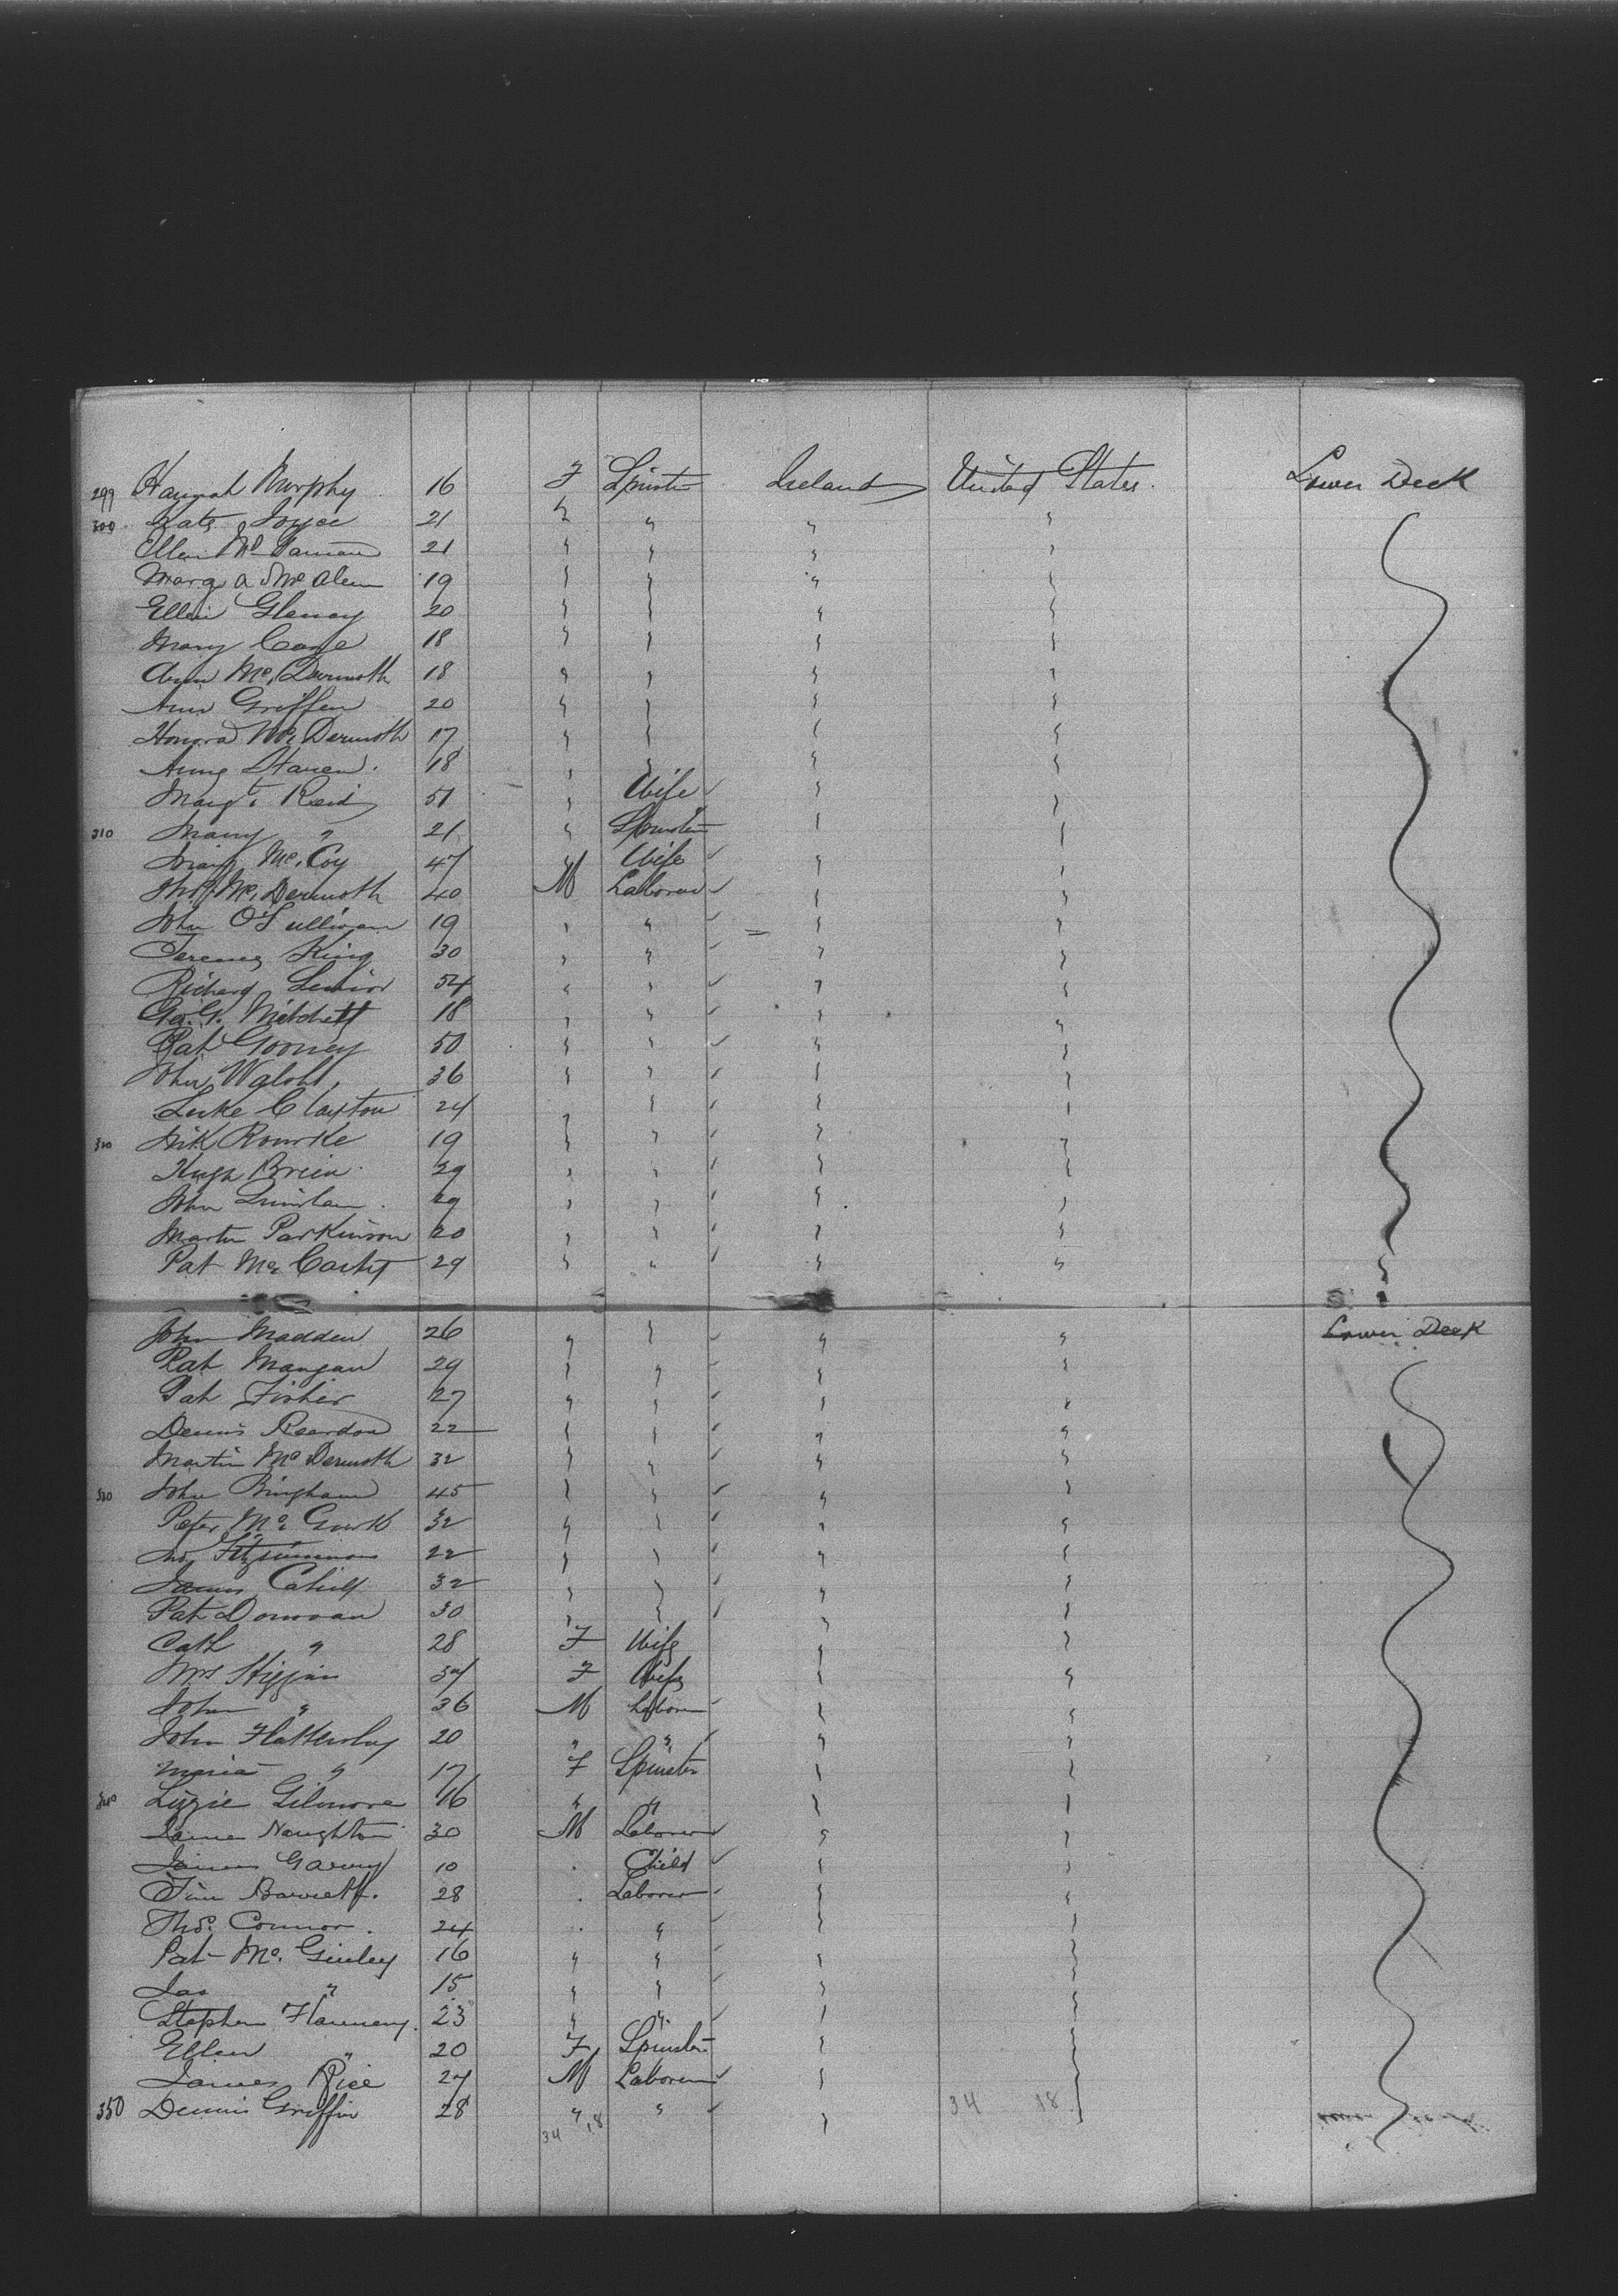 299 Hannah Murphy 16 F Spinster Ireland United States. Lower Deck
300 Kate Joyce 21 " " " "
Ellen 21 " " " "
19 " " " "
Ellen 20 " " " "
Mary 18 " " " "
Ann Mc. Dermoth 18 " " " "
Ann Griffen 20 " " " "
Honora Mc Dermoth 17 " " " "
18 " " " "
Margt. Reid 51 " Wife " "
310 Mary " 21 " Spinster " "
Mc. Coy 47 " Wife " "
Thos. Mc. Dermoth 40 M Laborer " "
John O'Sullivan 19 " " " "
Terence King 30 " " " "
Richard 54 " " " "
Mitchell 18 " " " "
Pat Gooney 50 " " " "
John 36 " " " "
Luke Clayton 24 " " " "
320 Rourke 19 " " " "
Hugh Brien 29 " " " "
John Quinlan 29 " " " "
Martin Parkinson 20 " " " "
Pat Mc Carthy 29 " " " " "
John Madden 26 " " " " Lower Deck
Pat Mangan 29 " " " "
Pat Fisher 27 " " " "
Dennis Reardon 22 " " " "
Martin Mc Dermoth 32 " " " "
330 John Bingham 45 " " " "
Peter Mc Gurk 32 " " " "
Fitzsimmons 22 " " " "
James Cahill 32 " " " "
Pat Donovan 30 " " " "
Cath " 28 F Wife " "
Mrs Higgins F Wife " "
John " 36 M Laborer " "
John Flattersley 20 " " " "
Maria " 17 F Spinster " "
340 Lizzie Gilmore 16 " " " "
James Naughton 30 M Laborer " "
James Garvey 10 " Child " "
Tim Barrett. 28 " Laborer " "
Thos. Connor. 24 " " " "
Pat Mc. Ginley 16 " " " "
Jas " 15 " " " "
Stephen Flannery. 23 " " " "
Ellen " 20 F Spinster " "
James Rice 27 M Laborer " "
350 Dennis Griffin 28 " " " 34 18 "
34 18